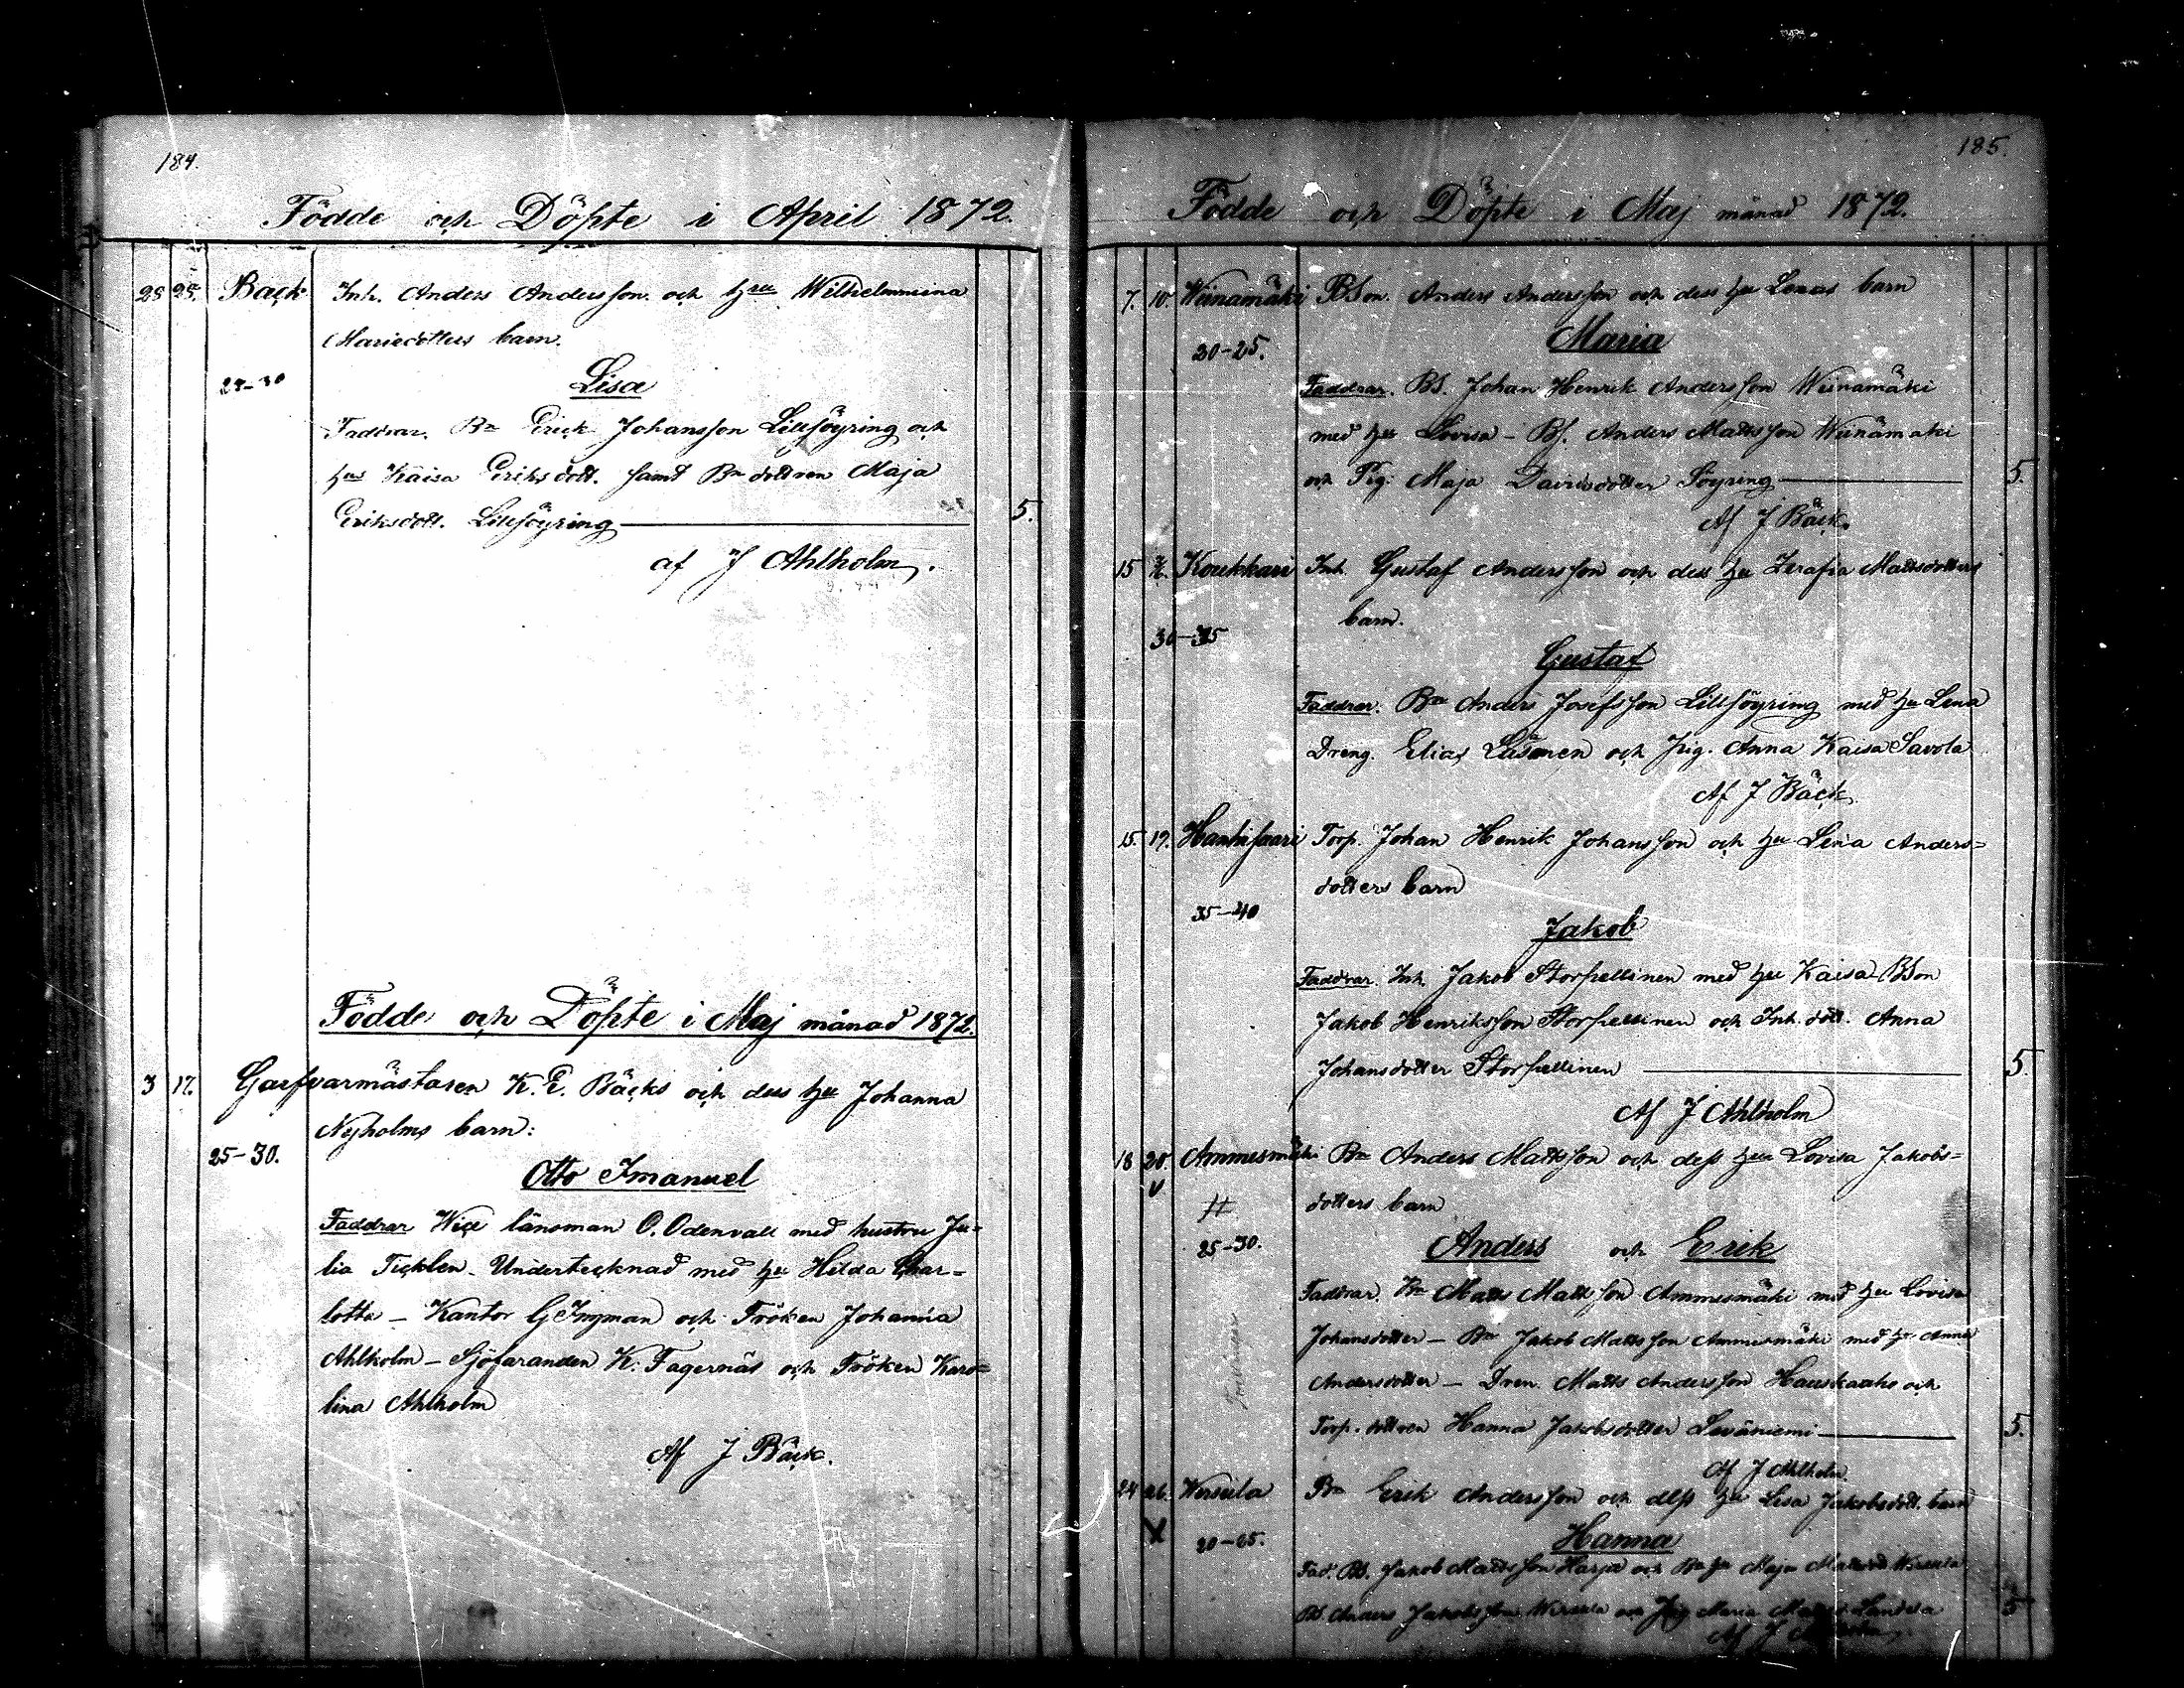 184.
Födde och Döpte i April 1872.
25 25. Back Inh. Anders Andersson och hru Wilhelmina
Mariedotters barn.
Lisa
Faddrar. Bn Erick Johansson Lillsöyring och
hru Kaisa Eriksdott. samt Bn dottren Maja
Eriksdott. Lillsöyring 5.
af J Ahlholm.
Födde och Döpte i Maj månad 1872.
3 17. Garfvarmästaren K. E. Bäcks och dess hu Johanna
Nyholms barn:
25-30.
Otto Imanuel
Faddrar Wice länsman O. Odenvall med hustru Ju=
lia Ticklen. Undertecknad med hu Hilda Char=
lotta - Kantor G Ingman och Fröken Johanna
Ahlholm - Sjöfaranden K. Fagernäs och Fröken Karo=
lina Ahlholm
Af J Bäck.
185.
Födde och Döpte i Maj månad 1872.
7. 10. Weinamäki BSon. Anders Andersson och dess hu Lenas barn
30-25. Maria
Faddrar. BS. Johan Henrik Andersson Weinamäki
med hu Lovisa - BS. Anders Mattsson Weinämaki
och Pig. Maja Davidsdotter Söyring 5.
Af J Bäck.
15 Koukkari Inh. Gustaf Andersson och dess hu Serafia Mattsdotters
barn.
30-35
Gustaf
Faddrar. Bn Anders Josefsson Lillsöyring med hu Lena
Dreng. Elias Läsonen och Pig. Anna Kaisa Savola
Af J Bäck.
15. 19. Hanhisaari Torp. Johan Henrik Johansson och hu Lena Anders=
dotters barn
35-40
Jakob
Faddrar. Inh. Jakob Storpellinen med hu Kaisa BSon
Jakob Henriksson Storpellinen och Inh. dott. Anna
Johansdotter Storpellinen 5.
Af J Ahlholm
18 20. Ammesmäki Bn Anders Mattsson och dess hu Lovisa Jakobs=
dotters barn
25-30. Anders och Erik
Faddrar. Bn Matts Mattsson Ammesmäki med hu Lovisa
Johansdotter - Bn Jakob Mattsson Ammesmäki med hu Anna
Andersdotter - Dren. Matts Andersson Hauskaaho och
Torp. dottren Hanna Jakobsdotter Leväniemi 5.
Af J Ahlholm.
24 26. Wirsula Bn Erik Andersson och dess hu Lisa Jakobsdott. barn
Hanna
Fad. BS. Jakob Mattsson Harju och Bn hu Maja
BS. Anders Jakobsson och Pig Maria 5
Af J